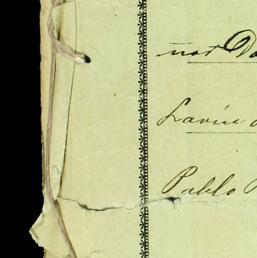 nor Do
Lavin
Pablo